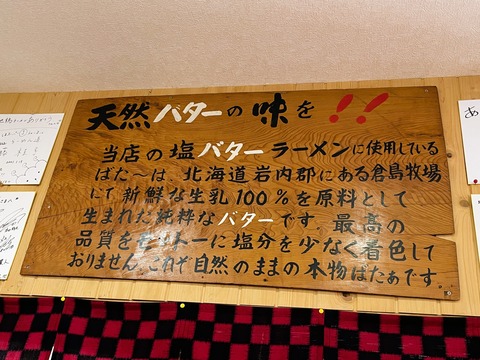 天然バターの味を!!
当店の塩バターラーメンに使用している
ばた〜は、北海道岩内郡にある倉島牧場
にて新鮮な生乳100%を原料として
生まれた純粋なバターです。最高の
品質を 一に塩分を少なく着色して
おりません。これぞ自然のままの本物ばたぁです。
あ